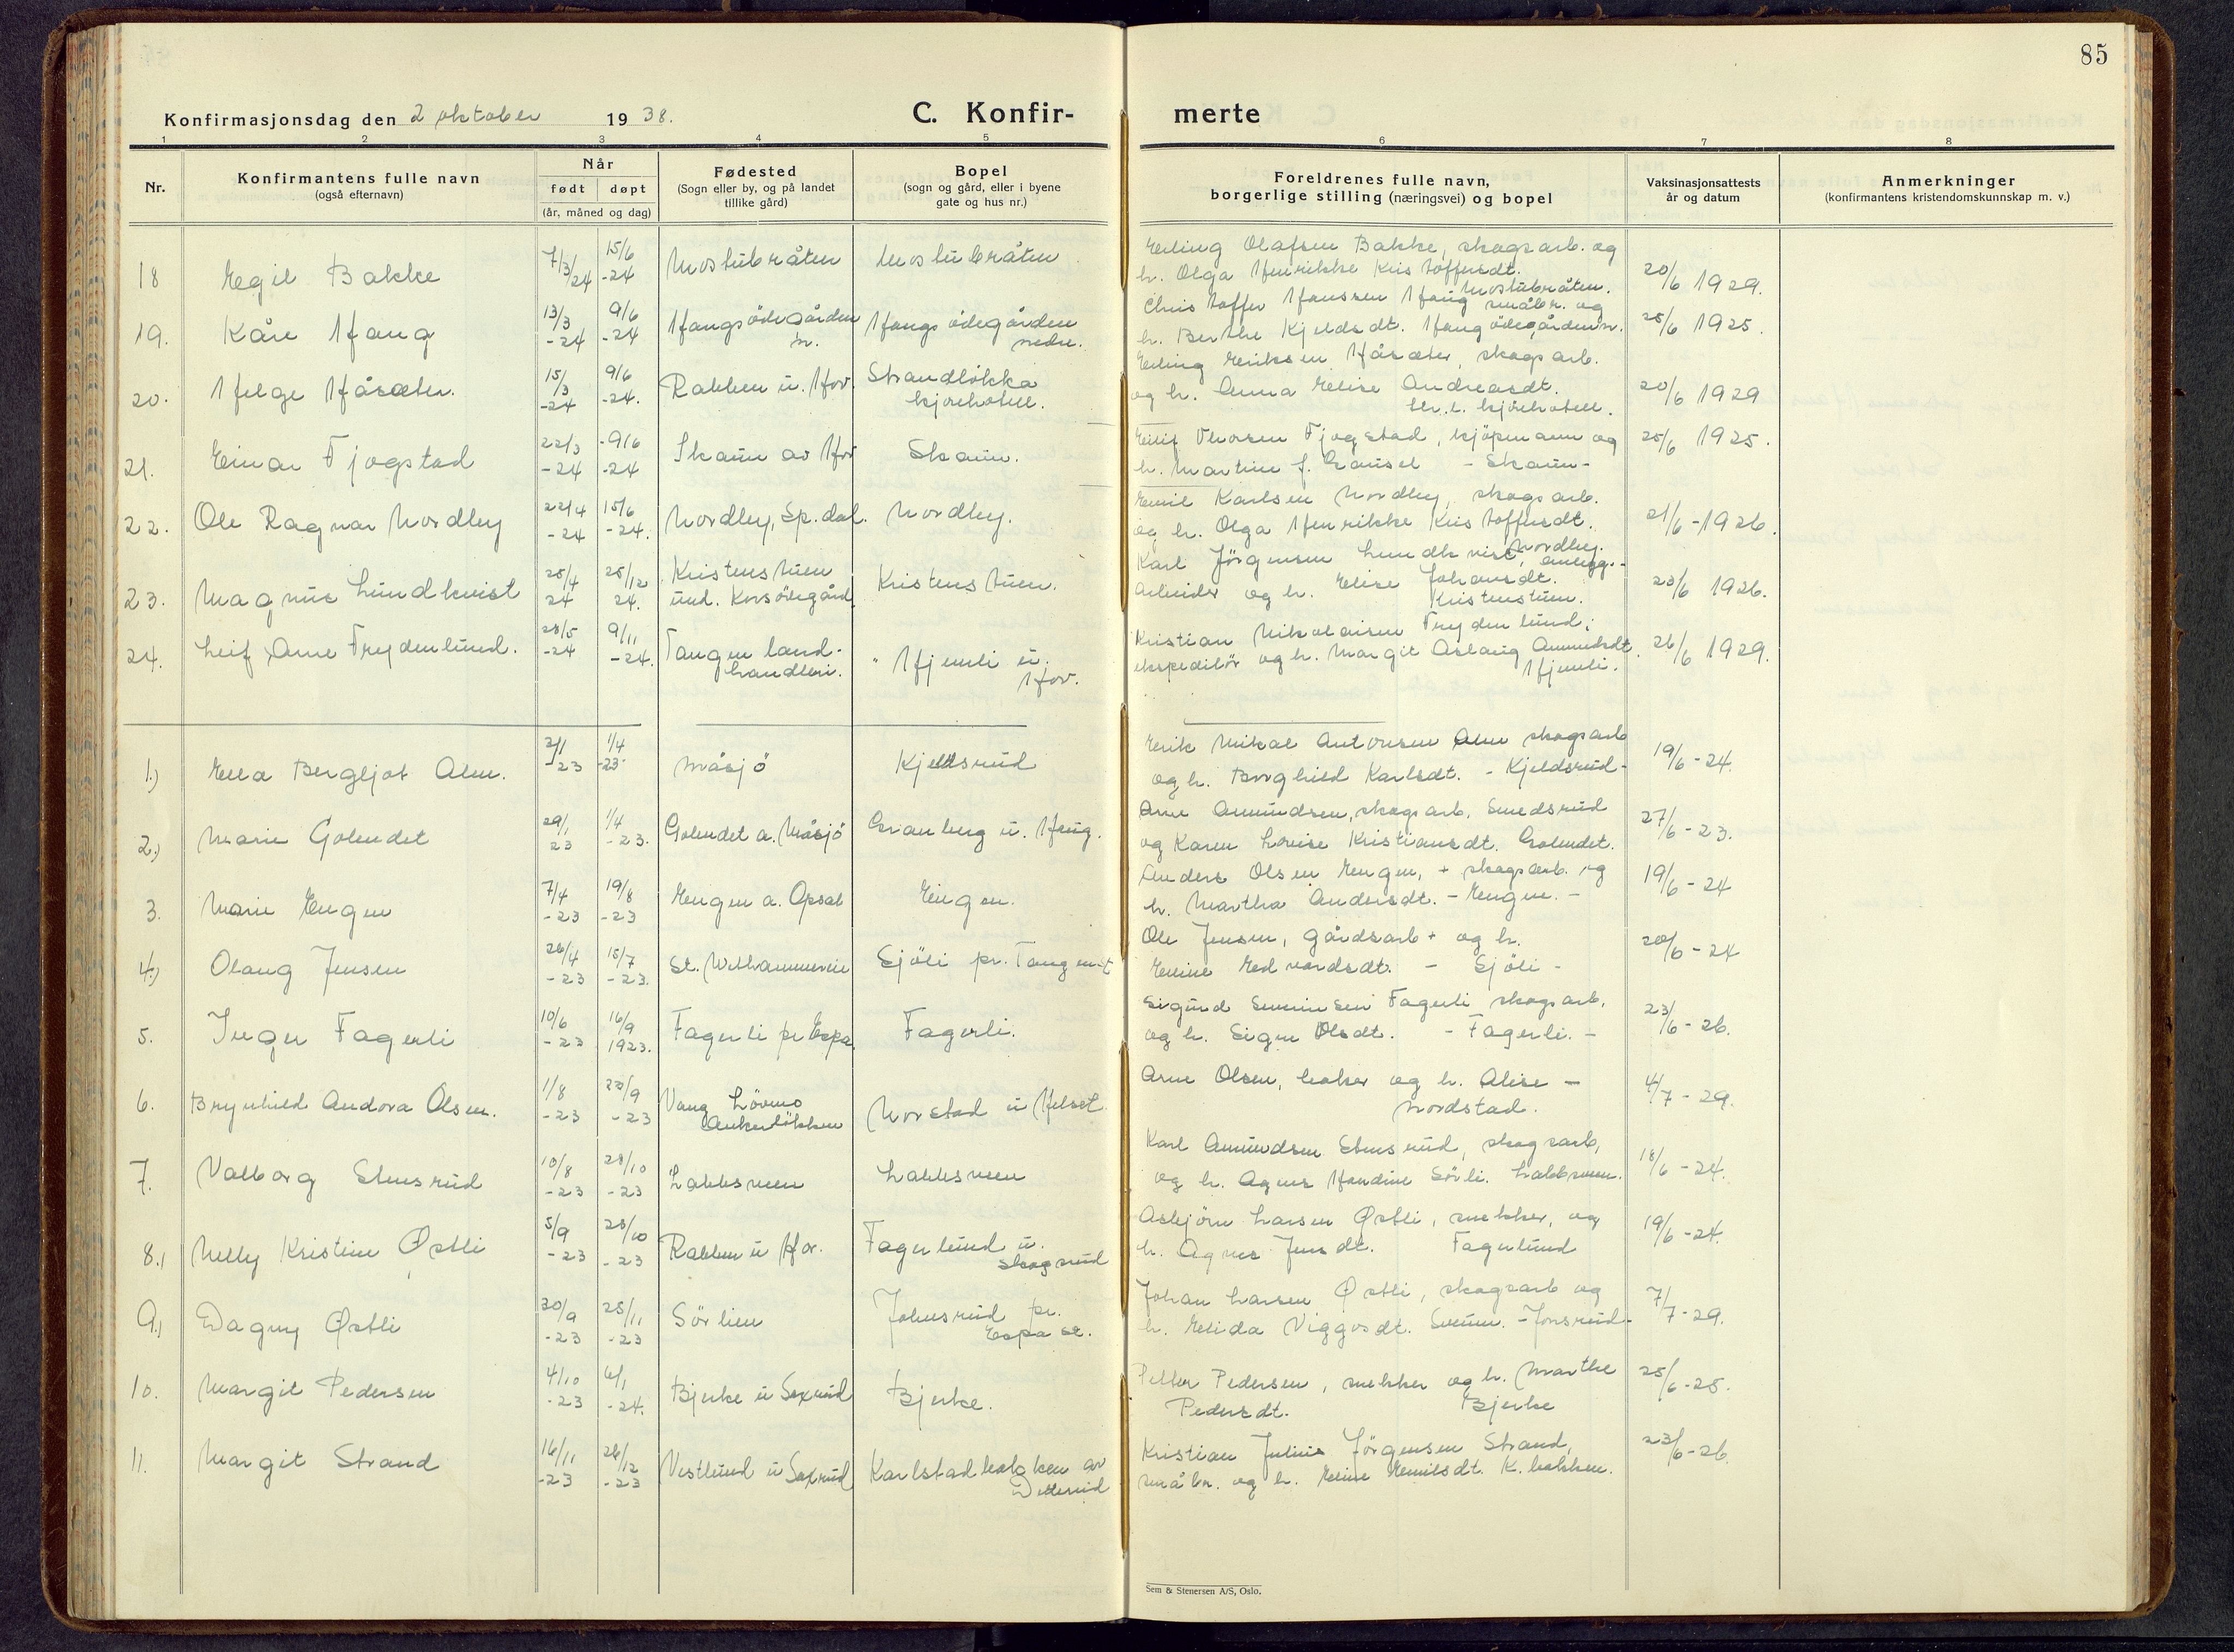 85
Konfirmasjonsdag den 2 oktober 1938.
C. Konfirmerte
1 2 3 4 5 6 7 8
Nr.
Konfirmantens fulle navn
(også efternavn)
Når
født døpt
(år, måned og dag)
Fødested
(Sogn eller by, og på landet
tillike gård)
Bopel
(sogn og gård, eller i byene
gate og hus nr.)
Foreldrenes fulle navn,
borgerlige stilling (næringsvei) og bopel
Vaksinasjonsattests
år og datum
Anmerkninger
(konfirmantens kristendomskunnskap m. v.)
18 Egil Bakke 7/3/24 15/6 -24 Mostubråten Mostubråten Erling Olafsen Bakke, skogsarb. og
h. Olga Henrikke Kristoffersdt. Mostubråten. 20/6 1929.
19. Kåre Haug 13/3 -24 9/6 -24 Haugsödegården n. Haugsödegården nedre. Christoffer Hanssen Haug småbr. og
h. Berthe Kjeldsdt. Haugödegården n. 25/6 1925.
20. Helge Håsæter. 15/3 -24 9/6 -24. Rabben u. Hov. Strandlökka Espa hotell. Erling Eriksen Håsæter, skogsarb.
og h. Anna Elise Andreasdt. 20/6 1929
21. Einar Fjogstad 22/3 -24 -9/6 -24 Skaun av Hov Skaun. Thorsen Fjogstad, kjöpmann og
h. Martine f. Gaustel - Skaun - 25/6 1925.
22. Ole Ragnar Nordby 22/4 -24 15/6 -24. Nordby, Sp.dal. Nordby. Emil Karlsen Nordby, skogsarb.
og h. Olga Henrikke Kristoffersdt. Nordby. 21/6 -1926.
23. Magnus Lundkvist 25/4 24 25/12 24. Kristenstuen und. Korsödegård Kristenstuen. Karl Jörgensen Lundkvist, anlegg.-
arbeider og h. Elise Johansdt. Kristenstuen. 23/6 1926.
24. Leif Arne Frydenlund. 28/5 -24 9/11 -24. Tangen landhandleri. Hjemli u. Hov. Kristian Nikolaisen Frydenlund,
ekspeditör og h. Margit Aslaug Amundsdt. Hjemli. 26/6 1929.
1.) Ella Bergljot Alm. 3/1 23 1/4 -23 Måsjö Kjeldsrud Erik Mikal Antonsen Alm skogsarb
og h. Borghild Karlsdt. - Kjeldsrud - 19/6 -24.
2.) Marie Golendet 29/1 23 1/4 -23. Golendet a. Måsjö Granberg u. Haug. Arne Amundsen, skogsarb. Smedsrud
og Karen Lovise Kristiansdt. Golendet. 27/6 -23.
3. Marie Engen 7/4 -23 19/8 -23 Engen a. Opsal Engen. Anders Olsen Engen, + skogsarb. og
h. Martha Andersdt. - Engen. - 19/6 -24
4.) Olaug Jensen 26/4 -23 15/7 -23. St. Sjöli pr. Tangen st Ole Jensen, gårdsarb + og h.
Elline Edvardsdt. - Sjöli - 20/6 -24
5. Inger Fagerli 10/6 -23 16/9 1923. Fagerli pr Espa Fagerli. Sigurd Fagerli skogsarb,
og h. Signe Olsdt. - Fagerli. - 23/6 -26.
6. Brynhild Andora Olsen. 1/8 -23 23/9 -23 Vang Lövmo Ankerlökken Norstad u Helset Arne Olsen, baker og h. Alise -
Nordstad. 4/7 -29.
7. Valborg Stensrud 10/8 -23 28/10 -23 Labbsveen Labbsveen Karl Amundsen Stensrud, skogsarb,
og h. Agnes Handine Sörli. Labbsveen. 18/6 -24.
8.) Nelly Kristine Østli 5/9 -23 28/10 -23 Rabben u Hov. Fagerlund u. Skogsrud Asbjörn Larsen Østli, snekker, og
h. Agnes Jensdt. Fagerlund 19/6 -24.
9.) Dagny Østli 30/9 -23 25/11 -23 Sörlien Johnsrud pr. Espa st. Johan Larsen Østli, skogsarb og
h. Elida Viggosdt. Sveum. - Jonsrud - 7/7 -29.
10. Margit Pedersen 4/10 -23 6/1 -24. Bjerke u Saxrud Bjerke. Petter Pedersen, snekker og h. Marthe
Pedersdt. Bjerke 25/6 -25.
11. Margit Strand 16/11 -23 26/12 -23 Vestlund u Saxrud Karlstadbakken av Kristian Julius Jörgensen Strand,
småbr. og h. Eline Emilsdt. K.bakken. 23/6 -26.
Sem & Stenersen A/S, Oslo.